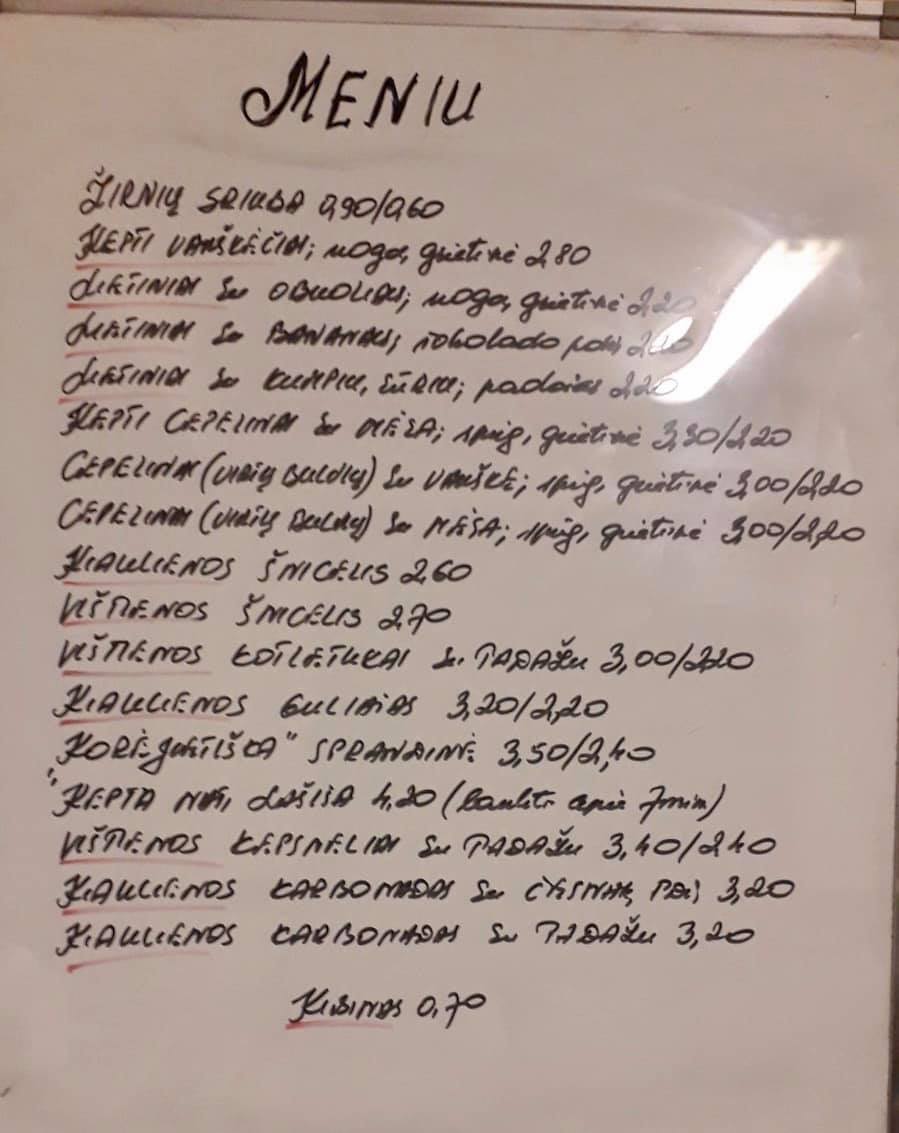 MENIU
ŽIRNIŲ SRIUBA 0,90/0,60
KEPTI VARŠKĖČIAI; uoga, grietinė 2,80
LIETINIAI su OBUOLIAIS; uoga, grietinė 2,20
LIETINIAI su BANANAIS; šokolado pad. 2,20
LIETINIAI su KUMPIU, SŪRIU; padažas 2,20
KEPTI CEPELINAI su MĖSA; spirg, grietinė 3,30/2,20
CEPELINAI (VIRIŲ BULVIŲ) su VARŠKE; spirg, grietinė 3,00/2,20
CEPELINAI (VIRIŲ BULVIŲ) su MĖSA; spirg, grietinė 3,00/2,20
KIAULIENOS ŠNICELIS 2,60
VIŠTIENOS ŠNICELIS 2,70
VIŠTIENOS KOTLETUKAI su PADAŽU 3,00/2,20
KIAULIENOS GULIAŠAS 3,20/2,20
"KORĖJIETIŠKA" SPRANDINĖ 3,50/2,40
KEPTA LAŠIŠA 4,20 (laukti apie 7min)
VIŠTIENOS KEPSNELIAI su PADAŽU 3,40/2,40
KIAULIENOS KARBONADAS su ČESNAK. PAD. 3,20
KIAULIENOS KARBONADAS su PADAŽU 3,20
KIBINAS 0,70